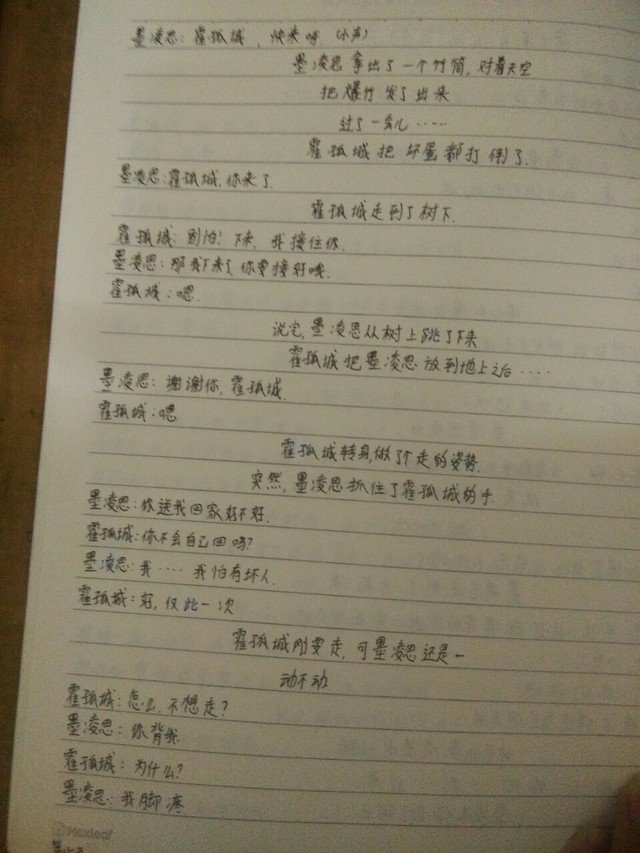 墨凌思：霍孤城，快来呀（小声）
墨凌思拿出了一个竹筒，对着天空
把爆竹发了出来
过了一会儿……
霍孤城把坏蛋都打倒了.
墨凌思：霍孤城，你来了.
霍孤城走到了树下.
霍孤城：别怕！下来，我接住你.
墨凌思：那我下来了，你要接好哦.
霍孤城：嗯.
说完，墨凌思从树上跳了下来
霍孤城把墨凌思放到地上之后……
墨凌思：谢谢你，霍孤城.
霍孤城：嗯.
霍孤城转身，做了个走的姿势.
突然，墨凌思抓住了霍孤城的手.
墨凌思：你送我回家好不好.
霍孤城：你不会自己回吗？
墨凌思：我……我怕有坏人.
霍孤城：好，仅此一次
霍孤城刚要走，可墨凌思还是一
动不动.
霍孤城：怎么，不想走？
墨凌思：你背我.
霍孤城：为什么？
墨凌思：我脚疼
Maxleaf